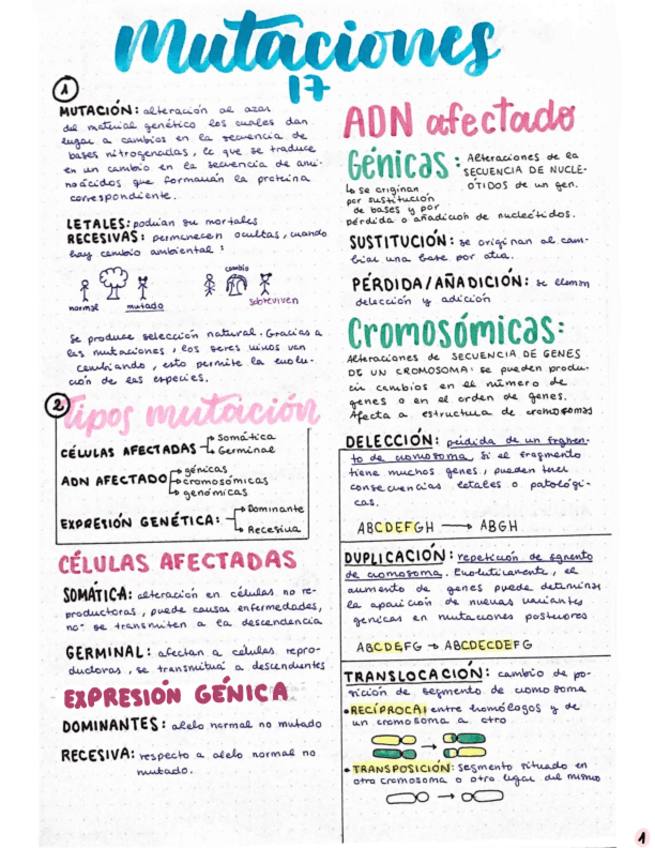 Mutaciones
17
1
MUTACIÓN: alteración al azar
del material genético los cuales dan
lugar a cambios en la secuencia de
bases nitrogenadas, lo que se traduce
en un cambio en la secuencia de ami-
noácidos que formarán la proteína
correspondiente.
LETALES: podrían ser mortales
RECESIVAS: permanecen ocultas, cuando
hay cambio ambiental:
cambio
normal mutado
sobreviven
Se produce selección natural. Gracias a
las mutaciones, los seres vivos van
cambiando, esto permite la evolu-
ción de las especies.
2
Tipos mutación
CÉLULAS AFECTADAS Somática
Germinal
ADN AFECTADO génicas
cromosómicas
genómicas
EXPRESIÓN GENÉTICA: Dominante
Recesiva
CÉLULAS AFECTADAS
SOMÁTICA: alteración en células no re-
productoras, puede causar enfermedades,
no se transmiten a la descendencia
GERMINAL: afectan a células repro-
ductoras, se transmitirá a descendientes
EXPRESIÓN GÉNICA
DOMINANTES: alelo normal no mutado
RECESIVA: respecto a alelo normal no
mutado.
ADN afectado
Génicas: Alteraciones de la
SECUENCIA DE NUCLE-
ÓTIDOS de un gen.
↳ se originan
por sustitución
de bases y por
pérdida o añadición de nucleótidos.
SUSTITUCIÓN: se originan al cam-
biar una base por otra.
PÉRDIDA/AÑADICIÓN: se llaman
delección y adición
Cromosómicas:
Alteraciones de SECUENCIA DE GENES
DE UN CROMOSOMA: se pueden produ-
cir cambios en el número de
genes o en el orden de genes.
Afecta a estructura de cromosomas
DELECCIÓN: pérdida de un fragmen-
to de cromosoma. Si el fragmento
tiene muchos genes, pueden traer
consecuencias letales o patológi-
cas.
ABCDEFGH → ABGH
DUPLICACIÓN: repetición de segmento
de cromosoma. Evolutivamente, el
aumento de genes puede determinar
la aparición de nuevas variantes
génicas en mutaciones posteriores
ABCDEFG → ABCDECDEFG
TRANSLOCACIÓN: cambio de po-
sición de segmento de cromosoma
• RECÍPROCA: entre homólogos y de
un cromosoma a otro
• TRANSPOSICIÓN: segmento situado en
otro cromosoma o otro lugar del mismo
1